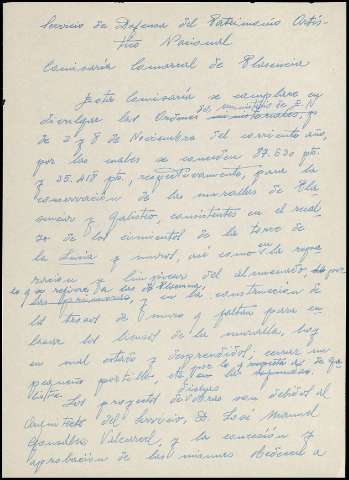 Servicio de Defensa del Patrimonio Artís-
tico Nacional
Comisaría Comarcal de Plasencia
Esta Comisaría se complace en
del ministerio de E. N
divulgar las Ordenes ministeriales,
de 2 y 8 de Noviembre del corriente año,
por las cuales se conceden 87.630 pts.
y 35.418 pts., respectivamente, para la
conservación de las murallas de Pla-
sencia y Galisteo, consistentes en el recal-
zo de los cimientos de la torre de
la Lucia y muros, así como en la repa-
ración y limpieza del almenado, por
lo que se refiere a las de Plasencia,
las primeras, y en la construcción de
los trozos de muro que faltan para en-
lazar los lienzos de la muralla, hoy
en mal estado y desprendidos, cerrar un
pequeño portillo, etc por lo que respecta a las de Ga-
en las segundas.
listeo.
Los proyectos de obras son debidos al
Arquitecto del Servicio, D. José Manuel
González Valcárcel, y la concesión y
aprobación de las mismas obedecen a